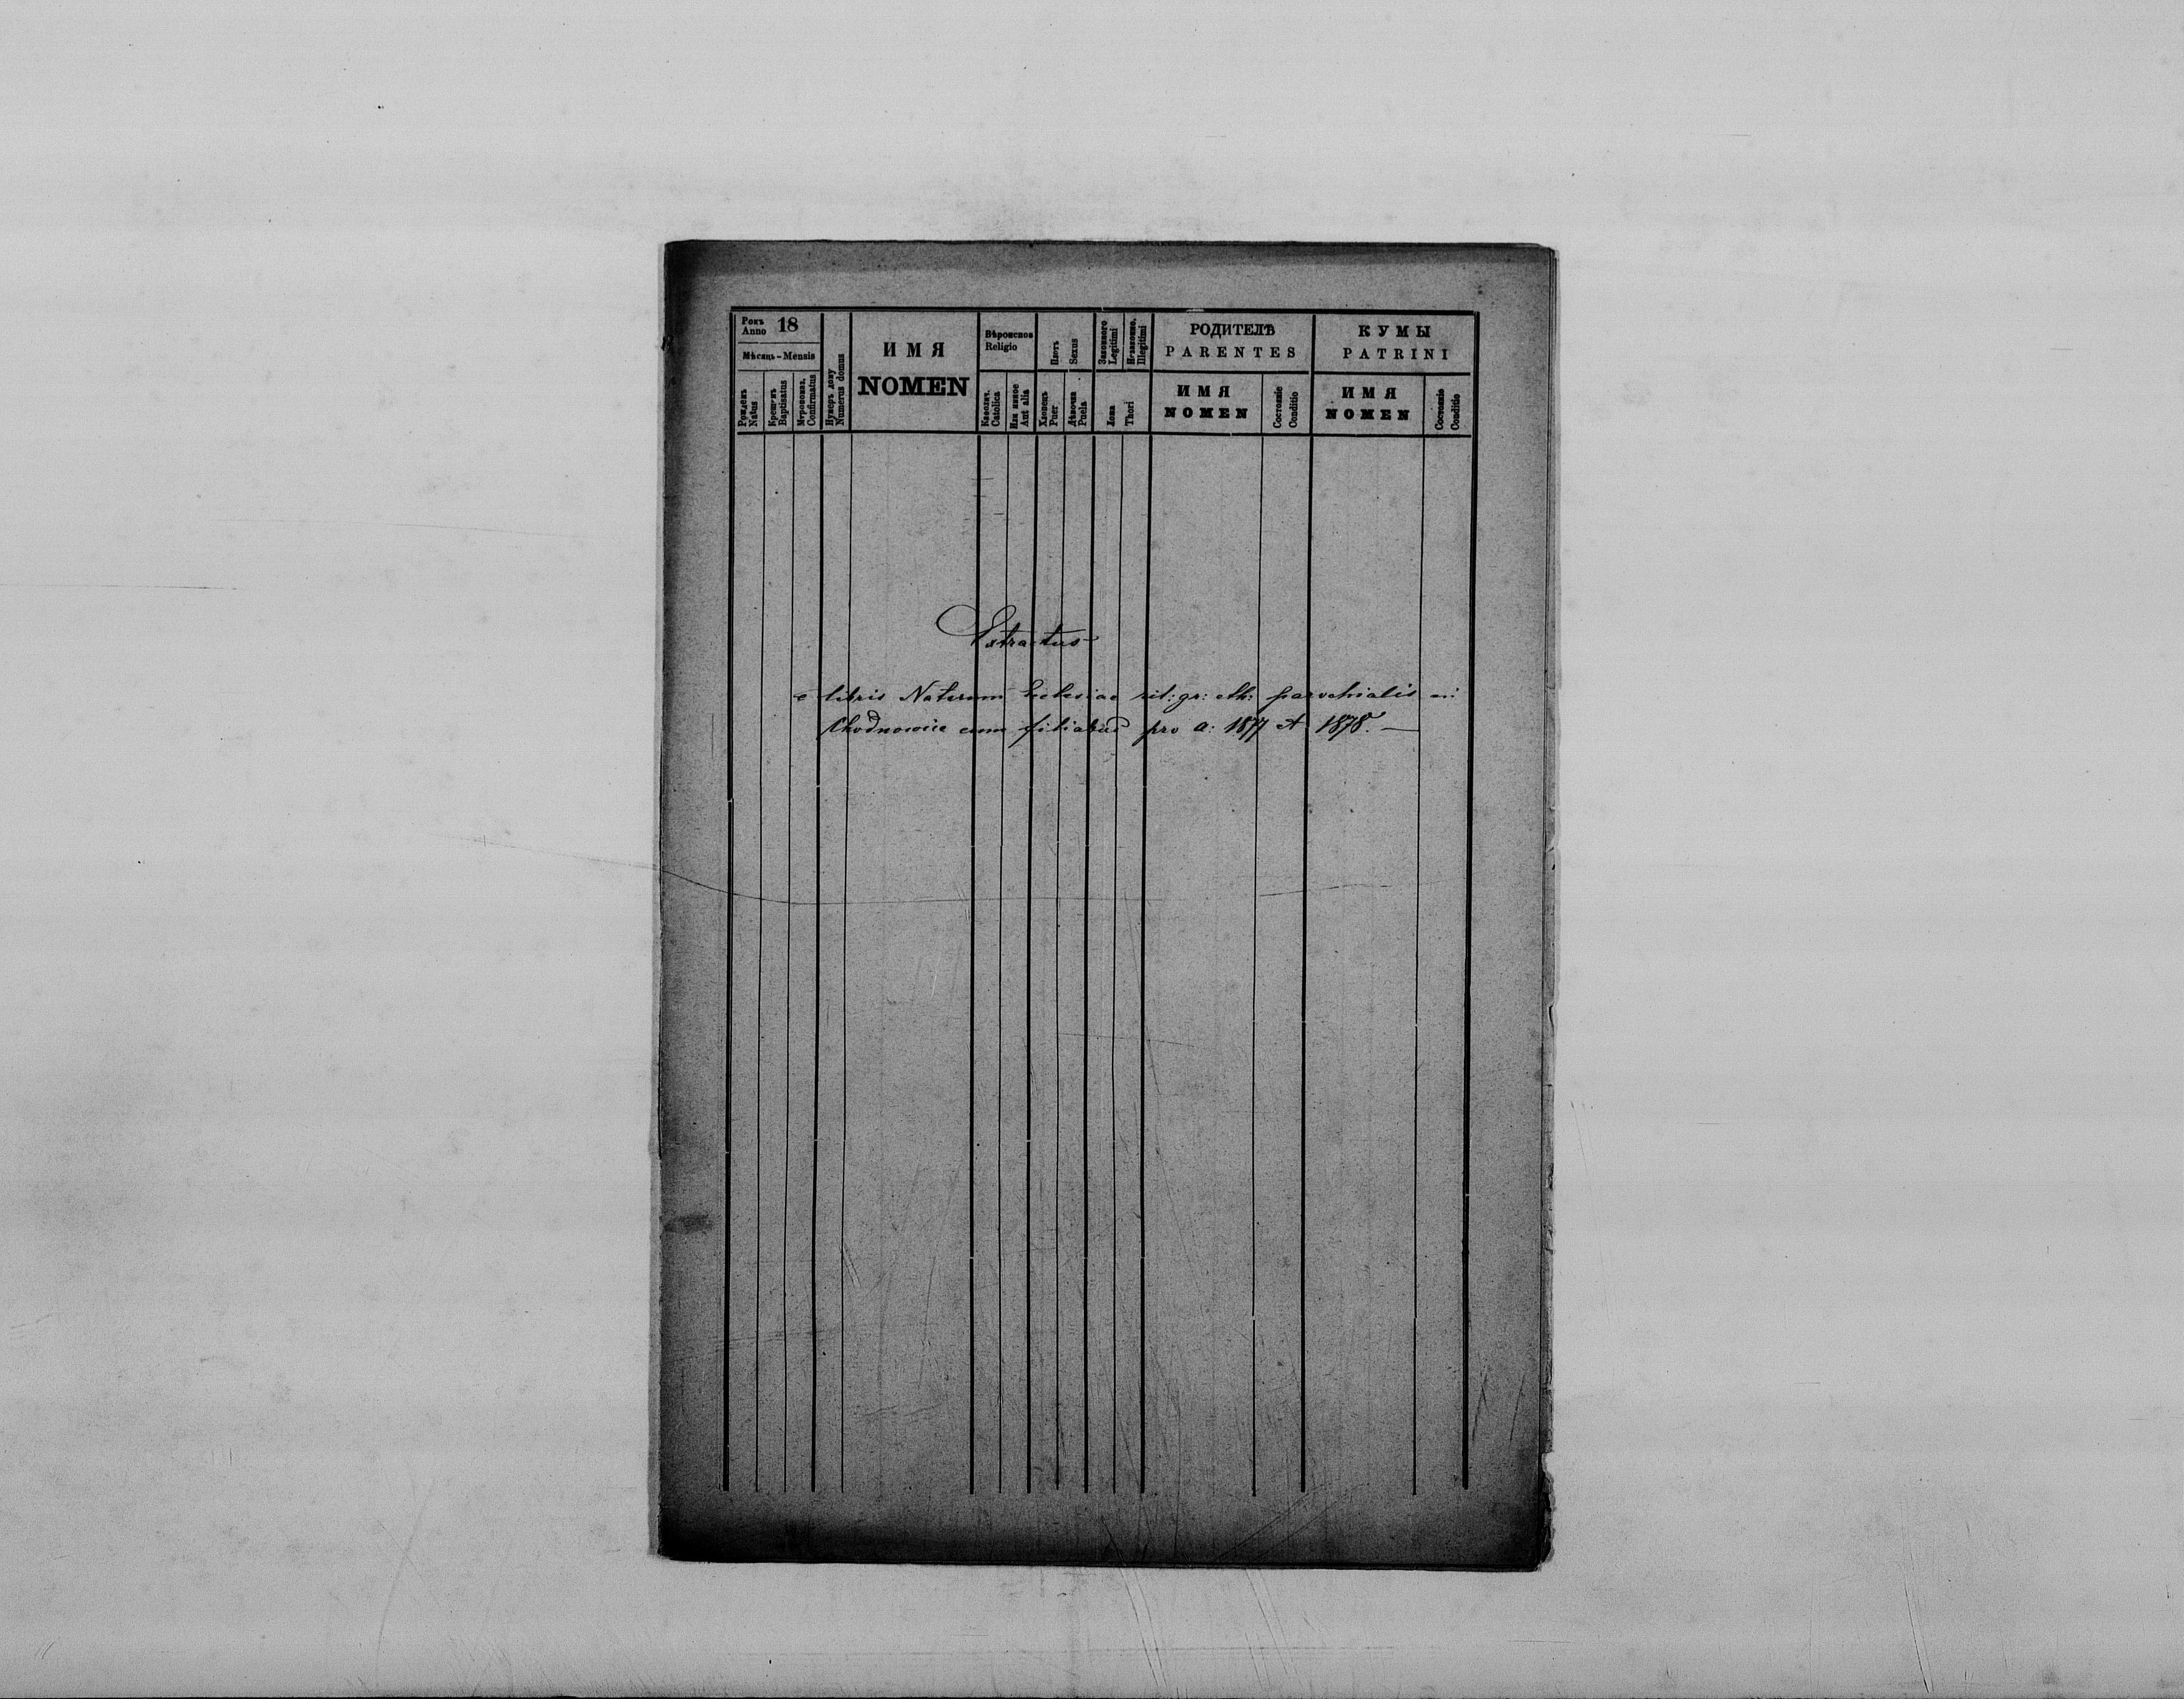 Рокъ 18
Anno
Мѣсяць - Mensis
Рожденъ
Natus
Крещенъ
Baptisatus
Мѵропомаз.
Confirmatus
Нумеръ дому
Numerus domus
ИМЯ
NOMEN
Religio
Catolica
Или инное
Aut alia
Sexus
Хлопецъ
Puer
Дѣвочка
Puela
Законного
Legitimi
Незаконно.
Illegitimi
Ложа
Thori
РОДИТЕЛѢ
PARENTES
ИМЯ
NOMEN
Состояніе
Conditio
КУМЫ
PATRINI
ИМЯ
NOMEN
Состояніе
Conditio
Extractus
e libris Natorum Ecclesiae rit: gr: cth: parochialis in:
Chodnowice cum filiabus pro a: 1877 et 1878. —